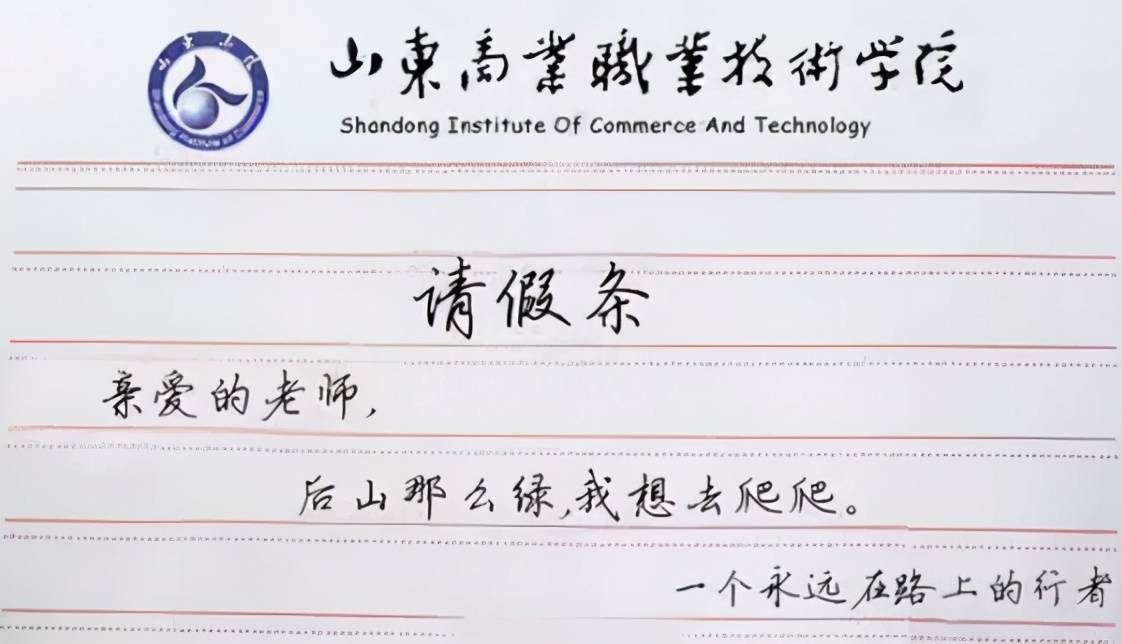 山東商業職業技術学院
Shandong Institute Of Commerce And Technology
请假条
亲爱的老师,
后山那么绿,我想去爬爬。
一个永远在路上的行者